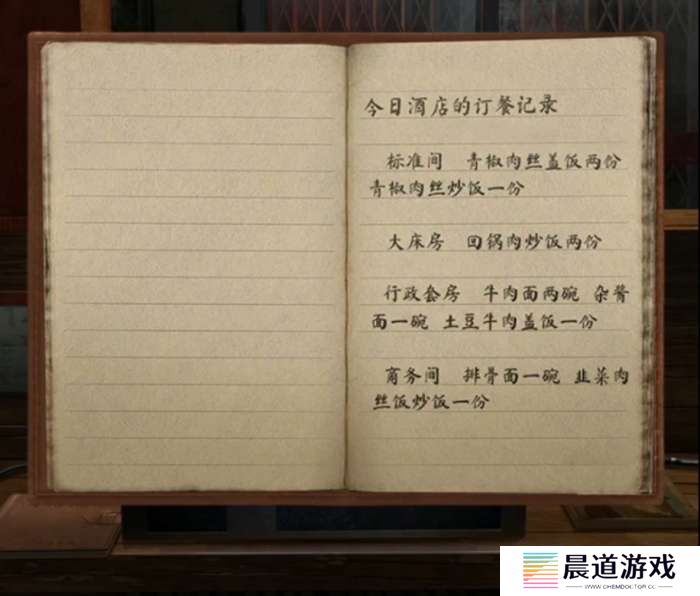 今日酒店的订餐记录
标准间 青椒肉丝盖饭两份
青椒肉丝炒饭一份
大床房 回锅肉炒饭两份
行政套房 牛肉面两碗 杂酱
面一碗 土豆牛肉盖饭一份
商务间 排骨面一碗 韭菜肉
丝饭炒饭一份
晨道游戏
WWW.CHEMDOCTOR.CC